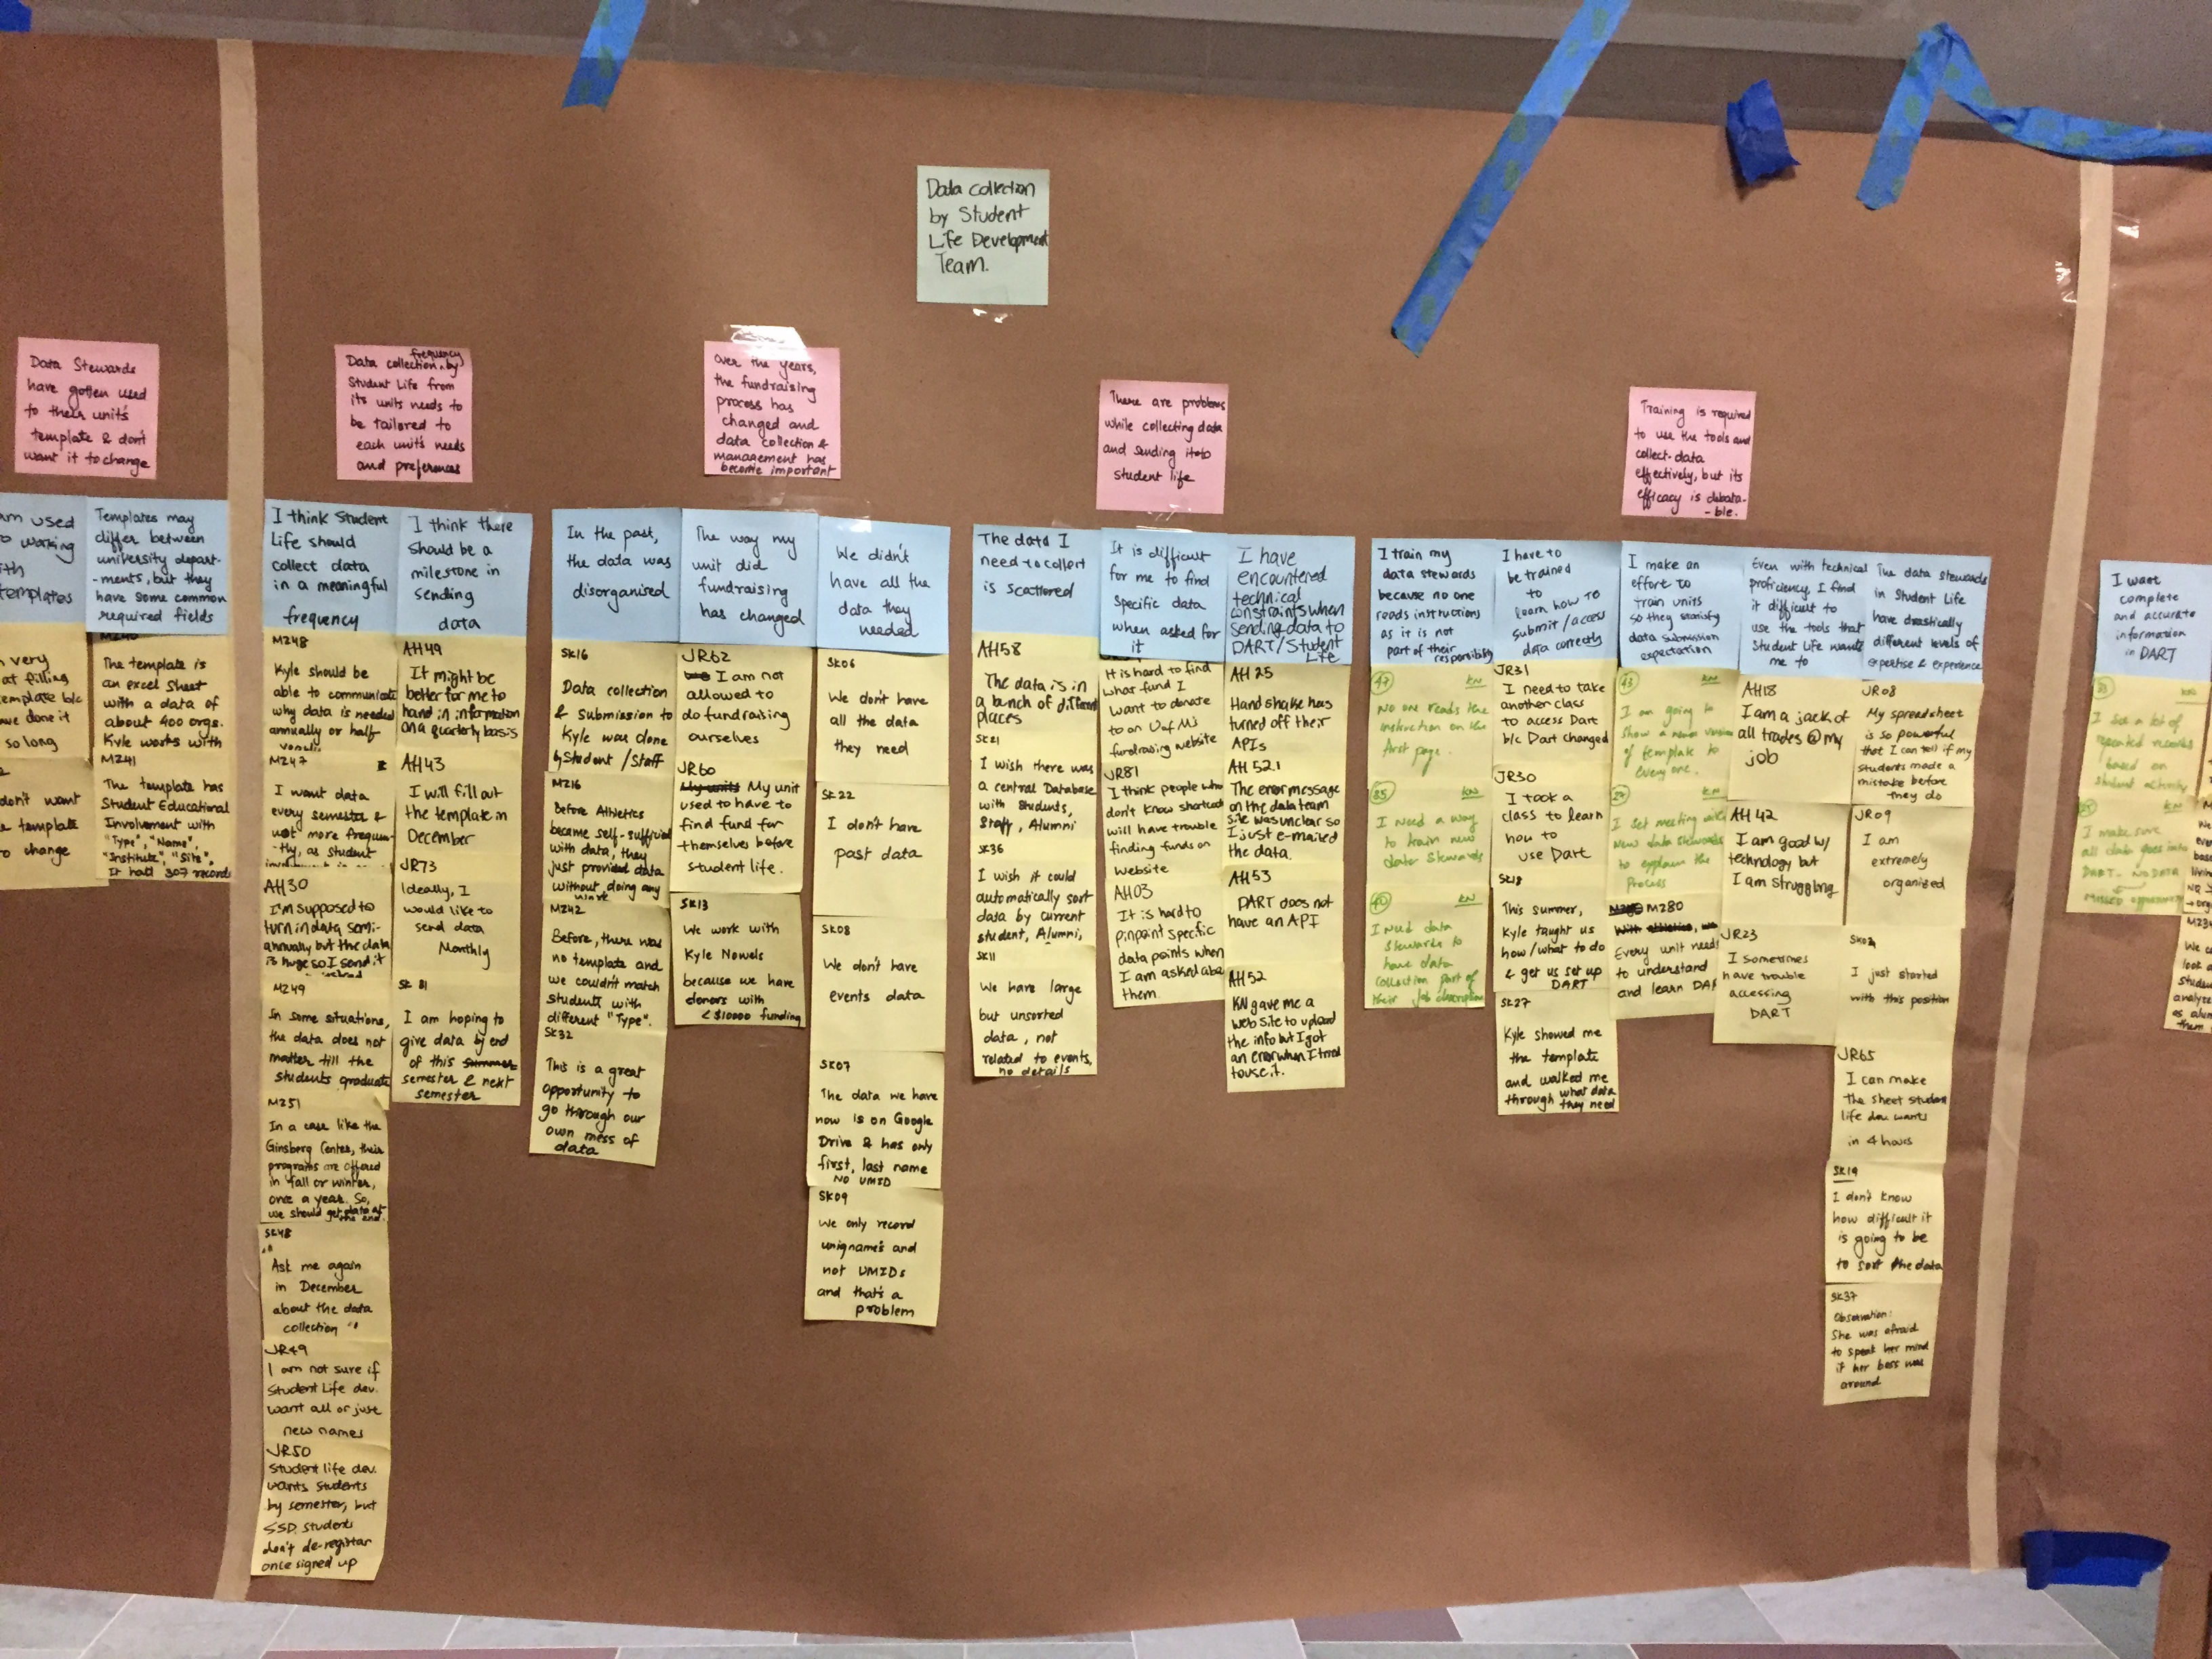 Data collection
by Student
Life Development
Team.
Data Stewards
have gotten used
to their unit's
template & don't
want it to change
Data collection frequency by
Student Life from
its units needs to
be tailored to
each unit's needs
and preferences
Over the years,
the fundraising
process has
changed and
data collection &
management has
become important
There are problems
while collecting data
and sending it to
student life
Training is required
to use the tools and
collect data
effectively, but its
efficacy is debata-
-ble.
am used
working
templates
very
at filling
template b/c
done it
so long
don't want
template
change
Templates may
differ between
university depart-
-ments, but they
have some common
required fields
The template is
an excel sheet
with a data of
about 400 orgs.
Kyle works with
M241
The template has
Student Educational
Involvement with
"Type", "Name",
"Institute", "Site",
It had 307 records
I think Student
Life should
collect data
in a meaningful
frequency
M248
Kyle should be
able to communicate
why data is needed
annually or half
M247
I want data
every semester &
not more frequen-
-tly, as student
AH30
I'm supposed to
turn in data semi-
annually but the data
is huge so I send it
M249
In some situations,
the data does not
matter till the
students graduate
M251
In a case like the
Ginsberg Center, their
programs are offered
in fall or winter,
once a year. So,
we should get data at
the end.
SK48
"
Ask me again
in December
about the data
collection "
JR49
I am not sure if
Student Life dev.
want all or just
new names
JR50
Student life dev.
wants students
by semester, but
SSD students
don't de-register
once signed up
I think there
should be a
milestone in
sending
data
AH49
It might be
better for me to
hand in information
on a quarterly basis
AH43
I will fill out
the template in
December
JR73
Ideally, I
would like to
send data
Monthly
SK31
I am hoping to
give data by end
of this Summer
semester & next
semester
In the past,
the data was
disorganised
SK16
Data collection
& submission to
Kyle was done
by Student / Staff
M216
Before Athletics
became self-sufficient
with data, they
just provided data
without doing any
work
M242
Before, there was
no template and
we couldn't match
students with
different "Type".
SK32
This is a great
opportunity to
go through our
own mess of
data
The way my
unit did
fundraising
has changed
JR62
I am not
allowed to
do fundraising
ourselves
JR60
My units My unit
used to have to
find fund for
themselves before
student life.
SK13
We work with
Kyle Nowels
because we have
donors with
< $10000 funding
We didn't
have all the
data they
needed
SK06
We don't have
all the data
they need
SK22
I don't have
past data
SK08
We don't have
events data
SK07
The data we have
now is on Google
Drive & has only
first, last name
NO UMID
SK09
We only record
uniqname's and
not UMIDs
and that's a
problem
The data I
need to collect
is scattered
AH58
The data is in
a bunch of different
places
SK21
I wish there was
a central Database
with Students,
Staff, Alumni
SK36
I wish it could
automatically sort
data by current
student, Alumni,
SK11
We have large
but unsorted
data, not
related to events,
no details
It is difficult
for me to find
specific data
when asked for
it
It is hard to find
what fund I
want to donate
to on UofM's
fundraising website
JR81
I think people who
don't know shortcuts
will have trouble
finding funds on
website
AH03
It is hard to
pinpoint specific
data points when
I am asked about
them.
I have
encountered
technical
constraints when
sending data to
DART/Student
Life
AH 25
Handshake has
turned off their
APIs
AH 52.1
The error message
on the data team
site was unclear so
I just e-mailed
the data.
AH53
DART does not
have an API
AH 52
KN gave me a
web site to upload
the info but I got
an error when I tried
to use it.
I train my
data stewards
because no one
reads instructions
as it is not
part of their
responsibility
47 KN
No one reads the
instruction on the
first page.
35 KN
I need a way
to train new
data stewards
40 KN
I need data
stewards to
have data
collection part of
their job description
I have to
be trained
to
learn how to
submit / access
data correctly
JR31
I need to take
another class
to access Dart
b/c Dart changed
JR30
I took a
class to learn
how to
use Dart
SK18
This summer,
Kyle taught us
how/what to do
& get us set up
DART
SK27
Kyle showed me
the template
and walked me
through what data
they need
I make an
effort to
train units
so they satisfy
data submission
expectation
KN
I am going to
show a new version
of template to
everyone.
KN
I set meeting with
new data stewards
to explain the
process
M280
Every unit needs
to understand
and learn DART
Even with technical
proficiency, I find
it difficult to
use the tools that
Student Life wants
me to
AH18
I am a jack of
all trades @ my
job
AH 42
I am good w/
technology but
I am struggling
JR23
I sometimes
have trouble
accessing
DART
The data stewards
in Student Life
have drastically
different levels of
expertise & experience
JR08
My spreadsheet
is so powerful
that I can tell if my
students made a
mistake before
they do
JR09
I am
extremely
organized
I just started
with this position
JR65
I can make
the sheet student
life dev wants
in 4 hours
SK19
I don't know
how difficult it
is going to be
to sort the data
SK37
Observation:
She was afraid
to speak her mind
if her boss was
around
I want
complete
and accurate
information
in DART
KN
I see a lot of
repeated records
based on
student activity
KN
I make sure
all data goes into
DART - NO DATA
Missed opportunity